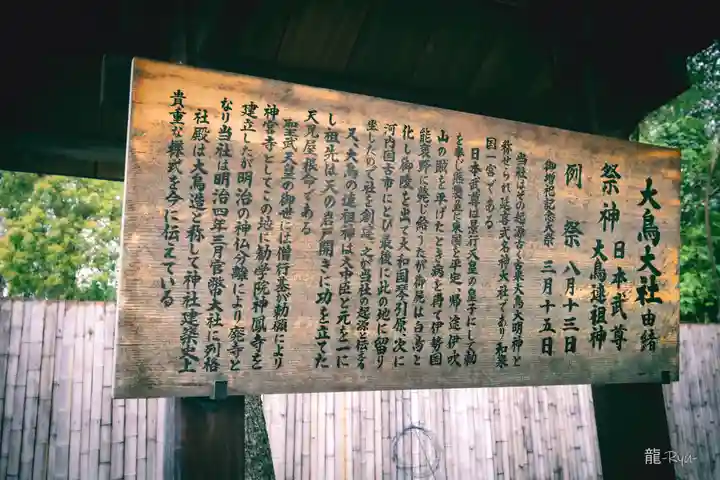 大鳥大社由緒
祭神 日本武尊
大鳥連祖神
例祭 八月十三日
御増祀記念大祭 三月十五日
当社はその起源古く泉大鳥大明神と
称せられ延喜式名神大社であり和泉
国一宮である
日本武尊は景行天皇の皇子にして勅
を奉じ熊襲並に東国を平定、帰途伊吹
山の賊を平げたとき病を得て伊勢国
能褒野に薨じ給うたが御屍は白鳥と
化し御陵を出て大和国琴引原、次に
河内国古市にとび最後に此の地に留り
坐したので社を創建、之が当社の起源と伝える
又、大鳥の連祖神は大中臣と元を一に
し祖先は天の岩戸開きに功を立てた
天児屋根命である
聖武天皇の御世には僧行基が勅願により
神宮寺としてこの地に勧学院神鳳寺を
建立したが明治の神仏分離により廃寺と
なり当社は明治四年三月官幣大社に列格
社殿は大鳥造と称して神社建築史上
貴重な様式を今に伝えている
龍-Ryu-